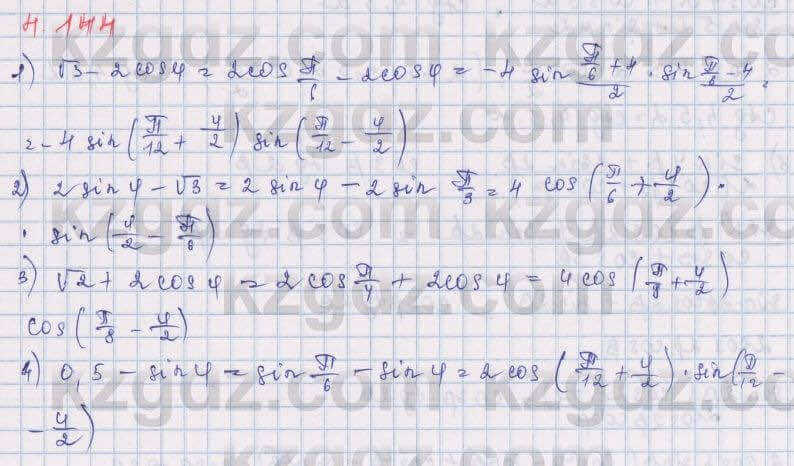 4.144
1) √3 - 2cosφ = 2cos π/6 - 2cosφ = -4 sin (π/6 + φ)/2 · sin (π/6 - φ)/2 =
= -4 sin(π/12 + φ/2) sin(π/12 - φ/2)
2) 2 sinφ - √3 = 2 sinφ - 2 sin π/3 = 4 cos(π/6 + φ/2) ·
· sin(φ/2 - π/6)
3) √2 + 2cosφ = 2cos π/4 + 2cosφ = 4cos(π/8 + φ/2)
cos(π/8 - φ/2)
4) 0,5 - sinφ = sin π/6 - sinφ = 2cos(π/12 + φ/2) · sin(π/12 -
- φ/2)
kzgdz.com